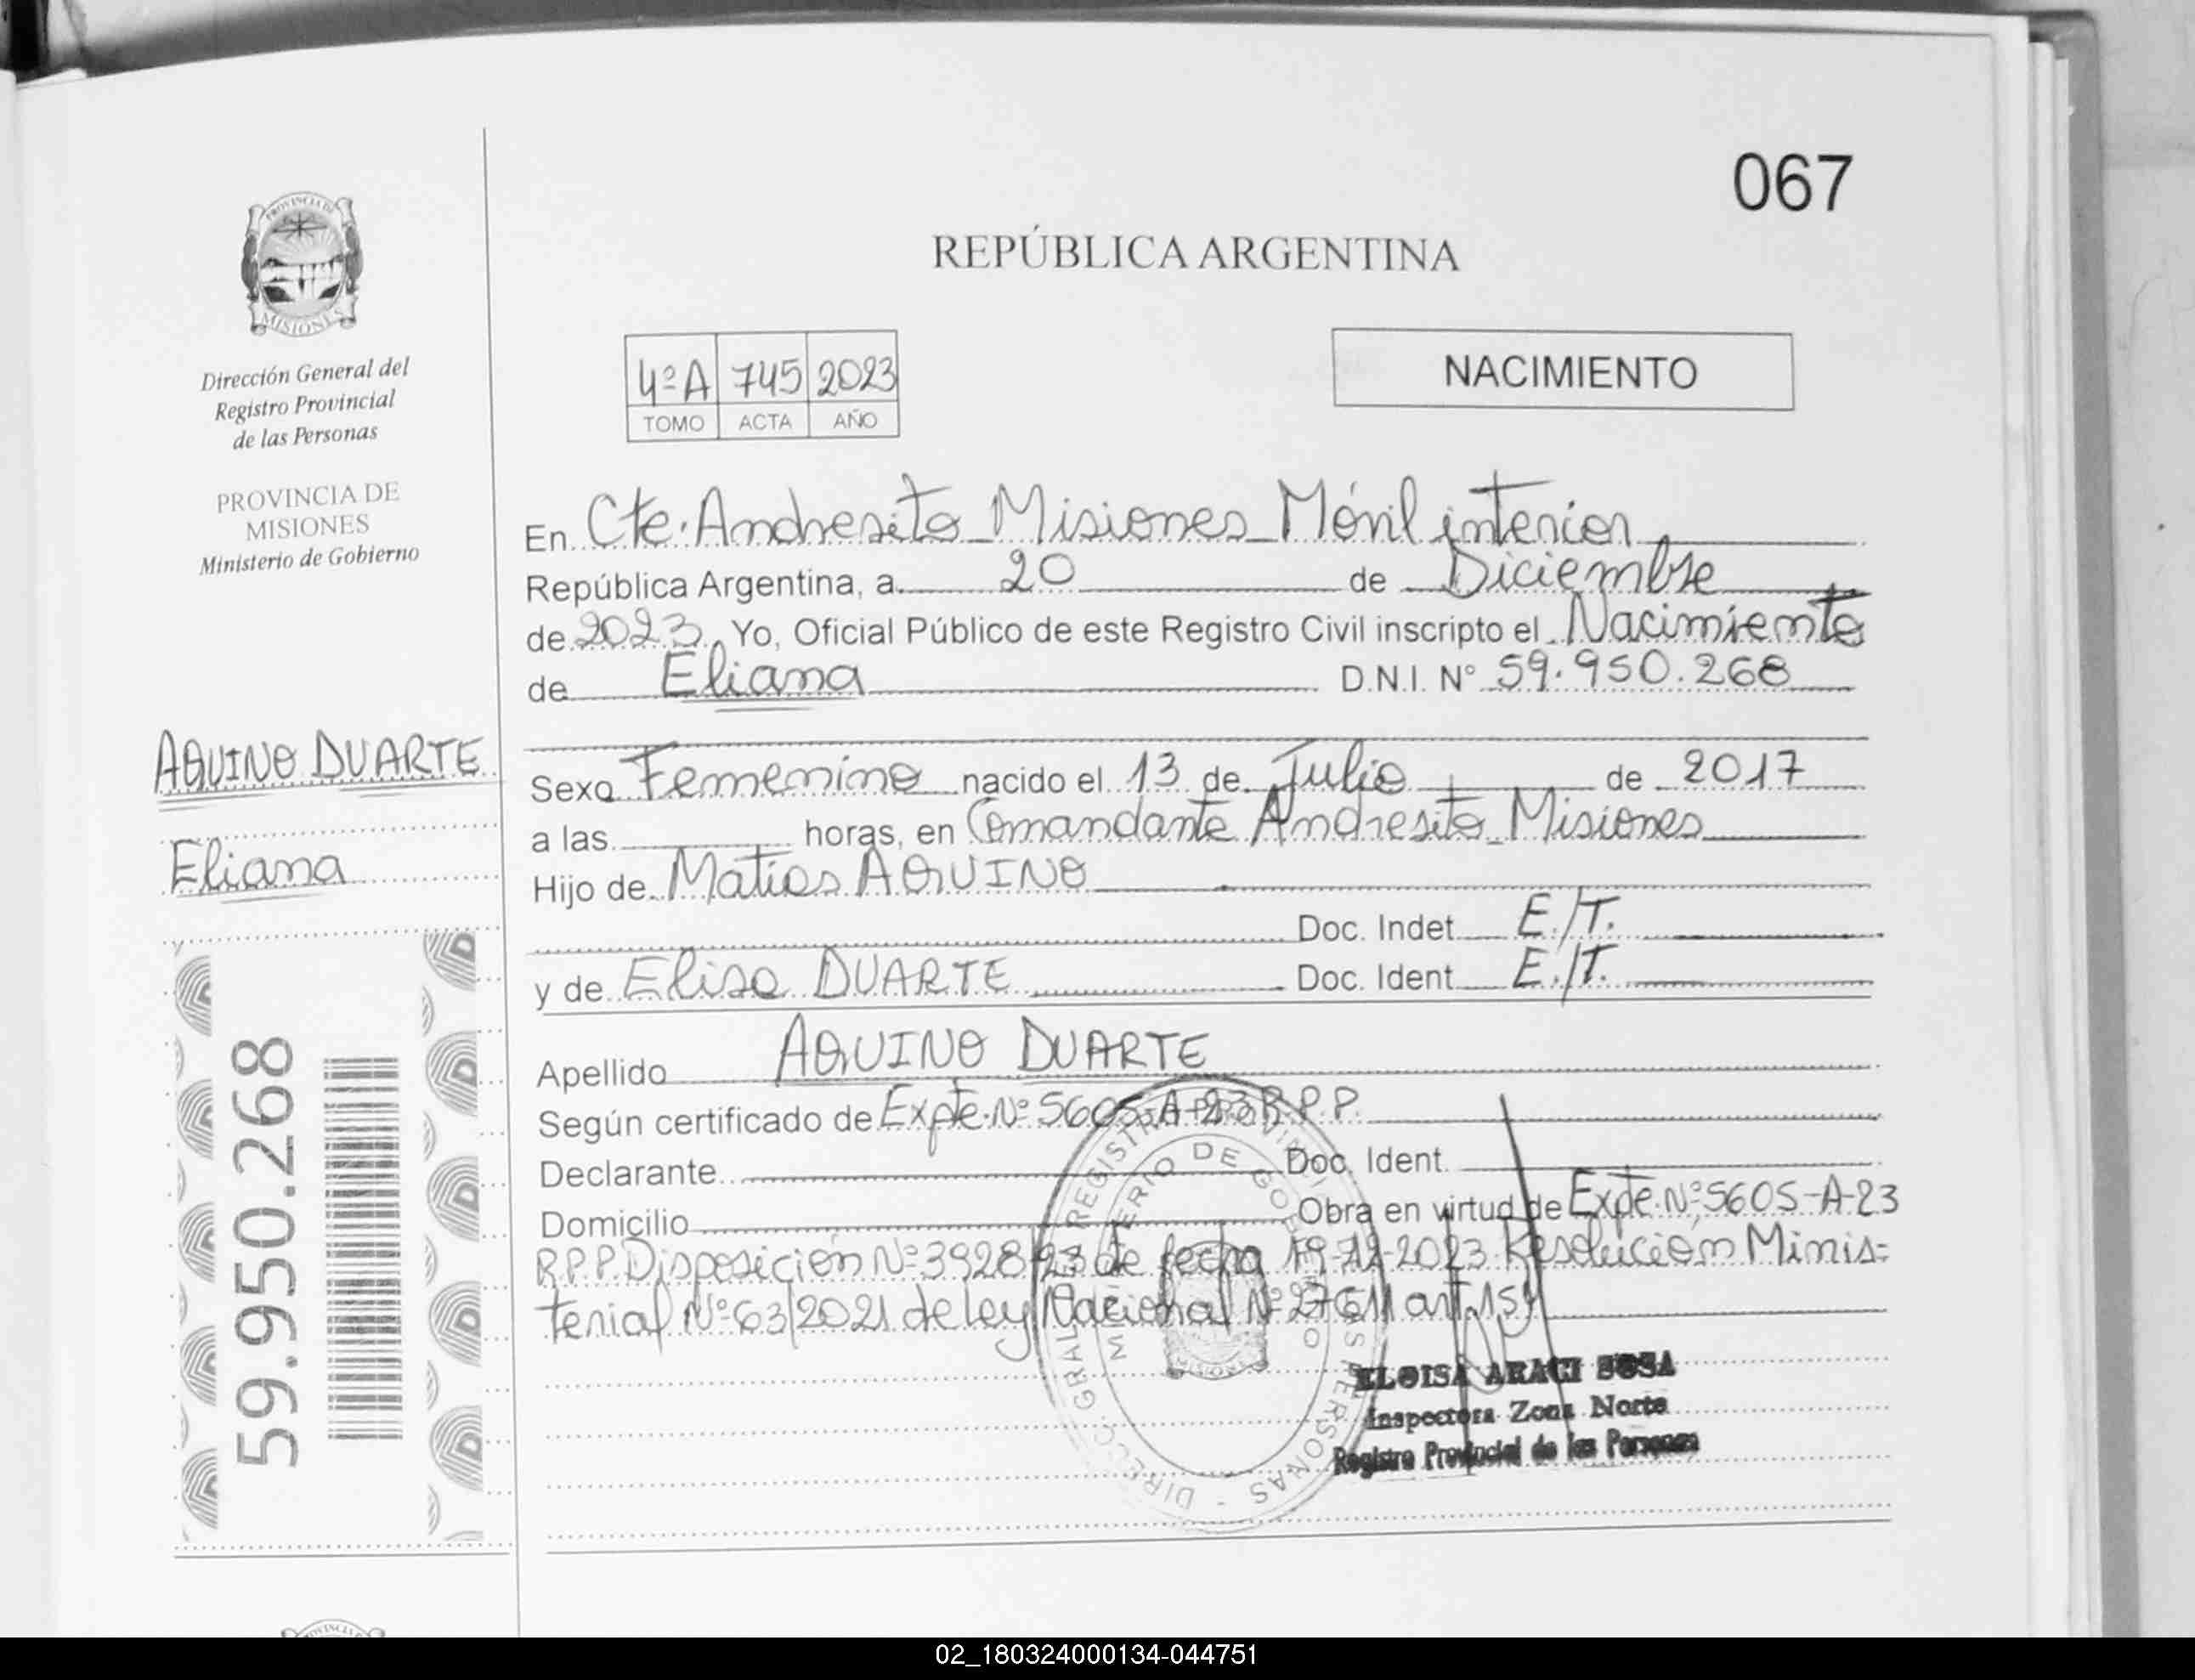 067
REPÚBLICA ARGENTINA
PROVINCIA DE
MISIONES
Dirección General del
Registro Provincial
de las Personas
PROVINCIA DE
MISIONES
Ministerio de Gobierno
4º A 745 2023
TOMO ACTA AÑO
NACIMIENTO
En Cte. Andresito Misiones Móvil interior
República Argentina, a 20 de Diciembre
de 2023 Yo, Oficial Público de este Registro Civil inscripto el Nacimiento
de Eliana D.N.I. N° 59.950.268
AQUINO DUARTE
Eliana
59.950.268
Sexo Femenino nacido el 13 de Julio de 2017
a las horas, en Comandante Andresito Misiones
Hijo de Matias AQUINO
Doc. Indet E./T.
y de Elisa DUARTE Doc. Ident E./T.
Apellido AQUINO DUARTE
Según certificado de Expte. Nº 5605-A-23 R.P.P.
Declarante Doc. Ident.
Domicilio Obra en virtud de Expte. Nº 5605-A-23
R.P.P. Disposición Nº 3928/23 de fecha 19-12-2023 Resolución Minis=
terial Nº 63/2021 de Ley Nacional Nº 27611 art.
MINISTERIO DE GOBIERNO
MISIONES
ELOISA ARACI SOSA
Inspectora Zona Norte
Registro Provincial de las Personas
02_180324000134-044751